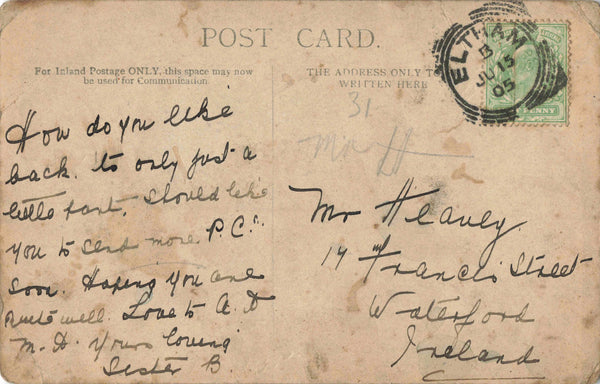 POST CARD.
For Inland Postage ONLY, this space may now
be used for Communication.
THE ADDRESS ONLY TO
WRITTEN HERE
ELTHAM
JU 15
05
PENNY
31
Mr H
How do you like
back. to only just a
little part. Should like
you to send more P.C's.
soon. Hoping you are
quite well. Love to A. D
M. H. Yours loving
Sister B
Mr Heavey.
14 Francis Street
Waterford
Ireland